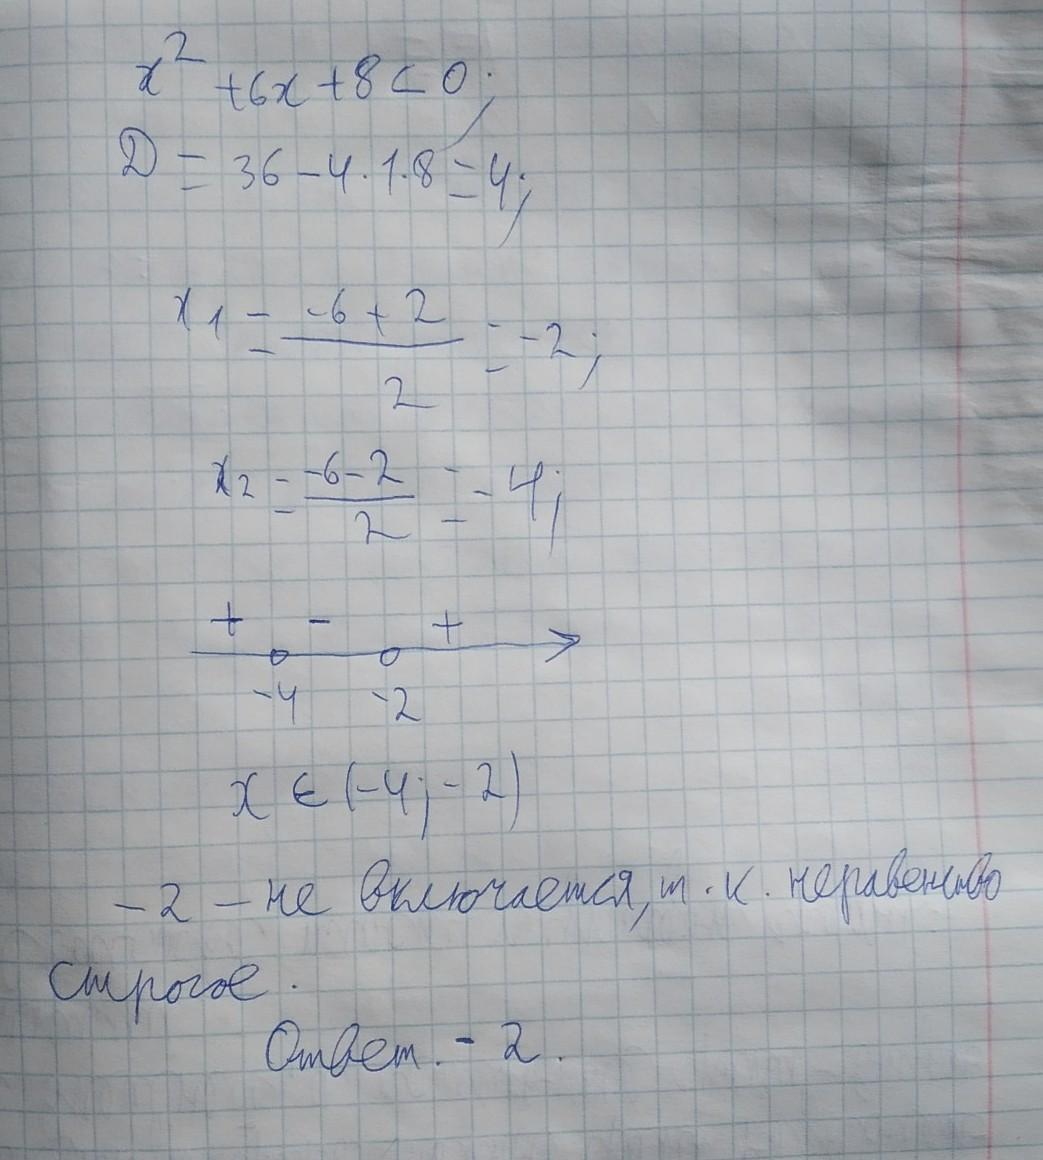 x² + 6x + 8 < 0;
D = 36 - 4 · 1 · 8 = 4;
x₁ = (-6 + 2)/2 = -2;
x₂ = (-6 - 2)/2 = -4;
+ - +
-4 -2
x ∈ (-4; -2)
-2 - не включается, т. к. неравенство
строгое.
Ответ. - 2.